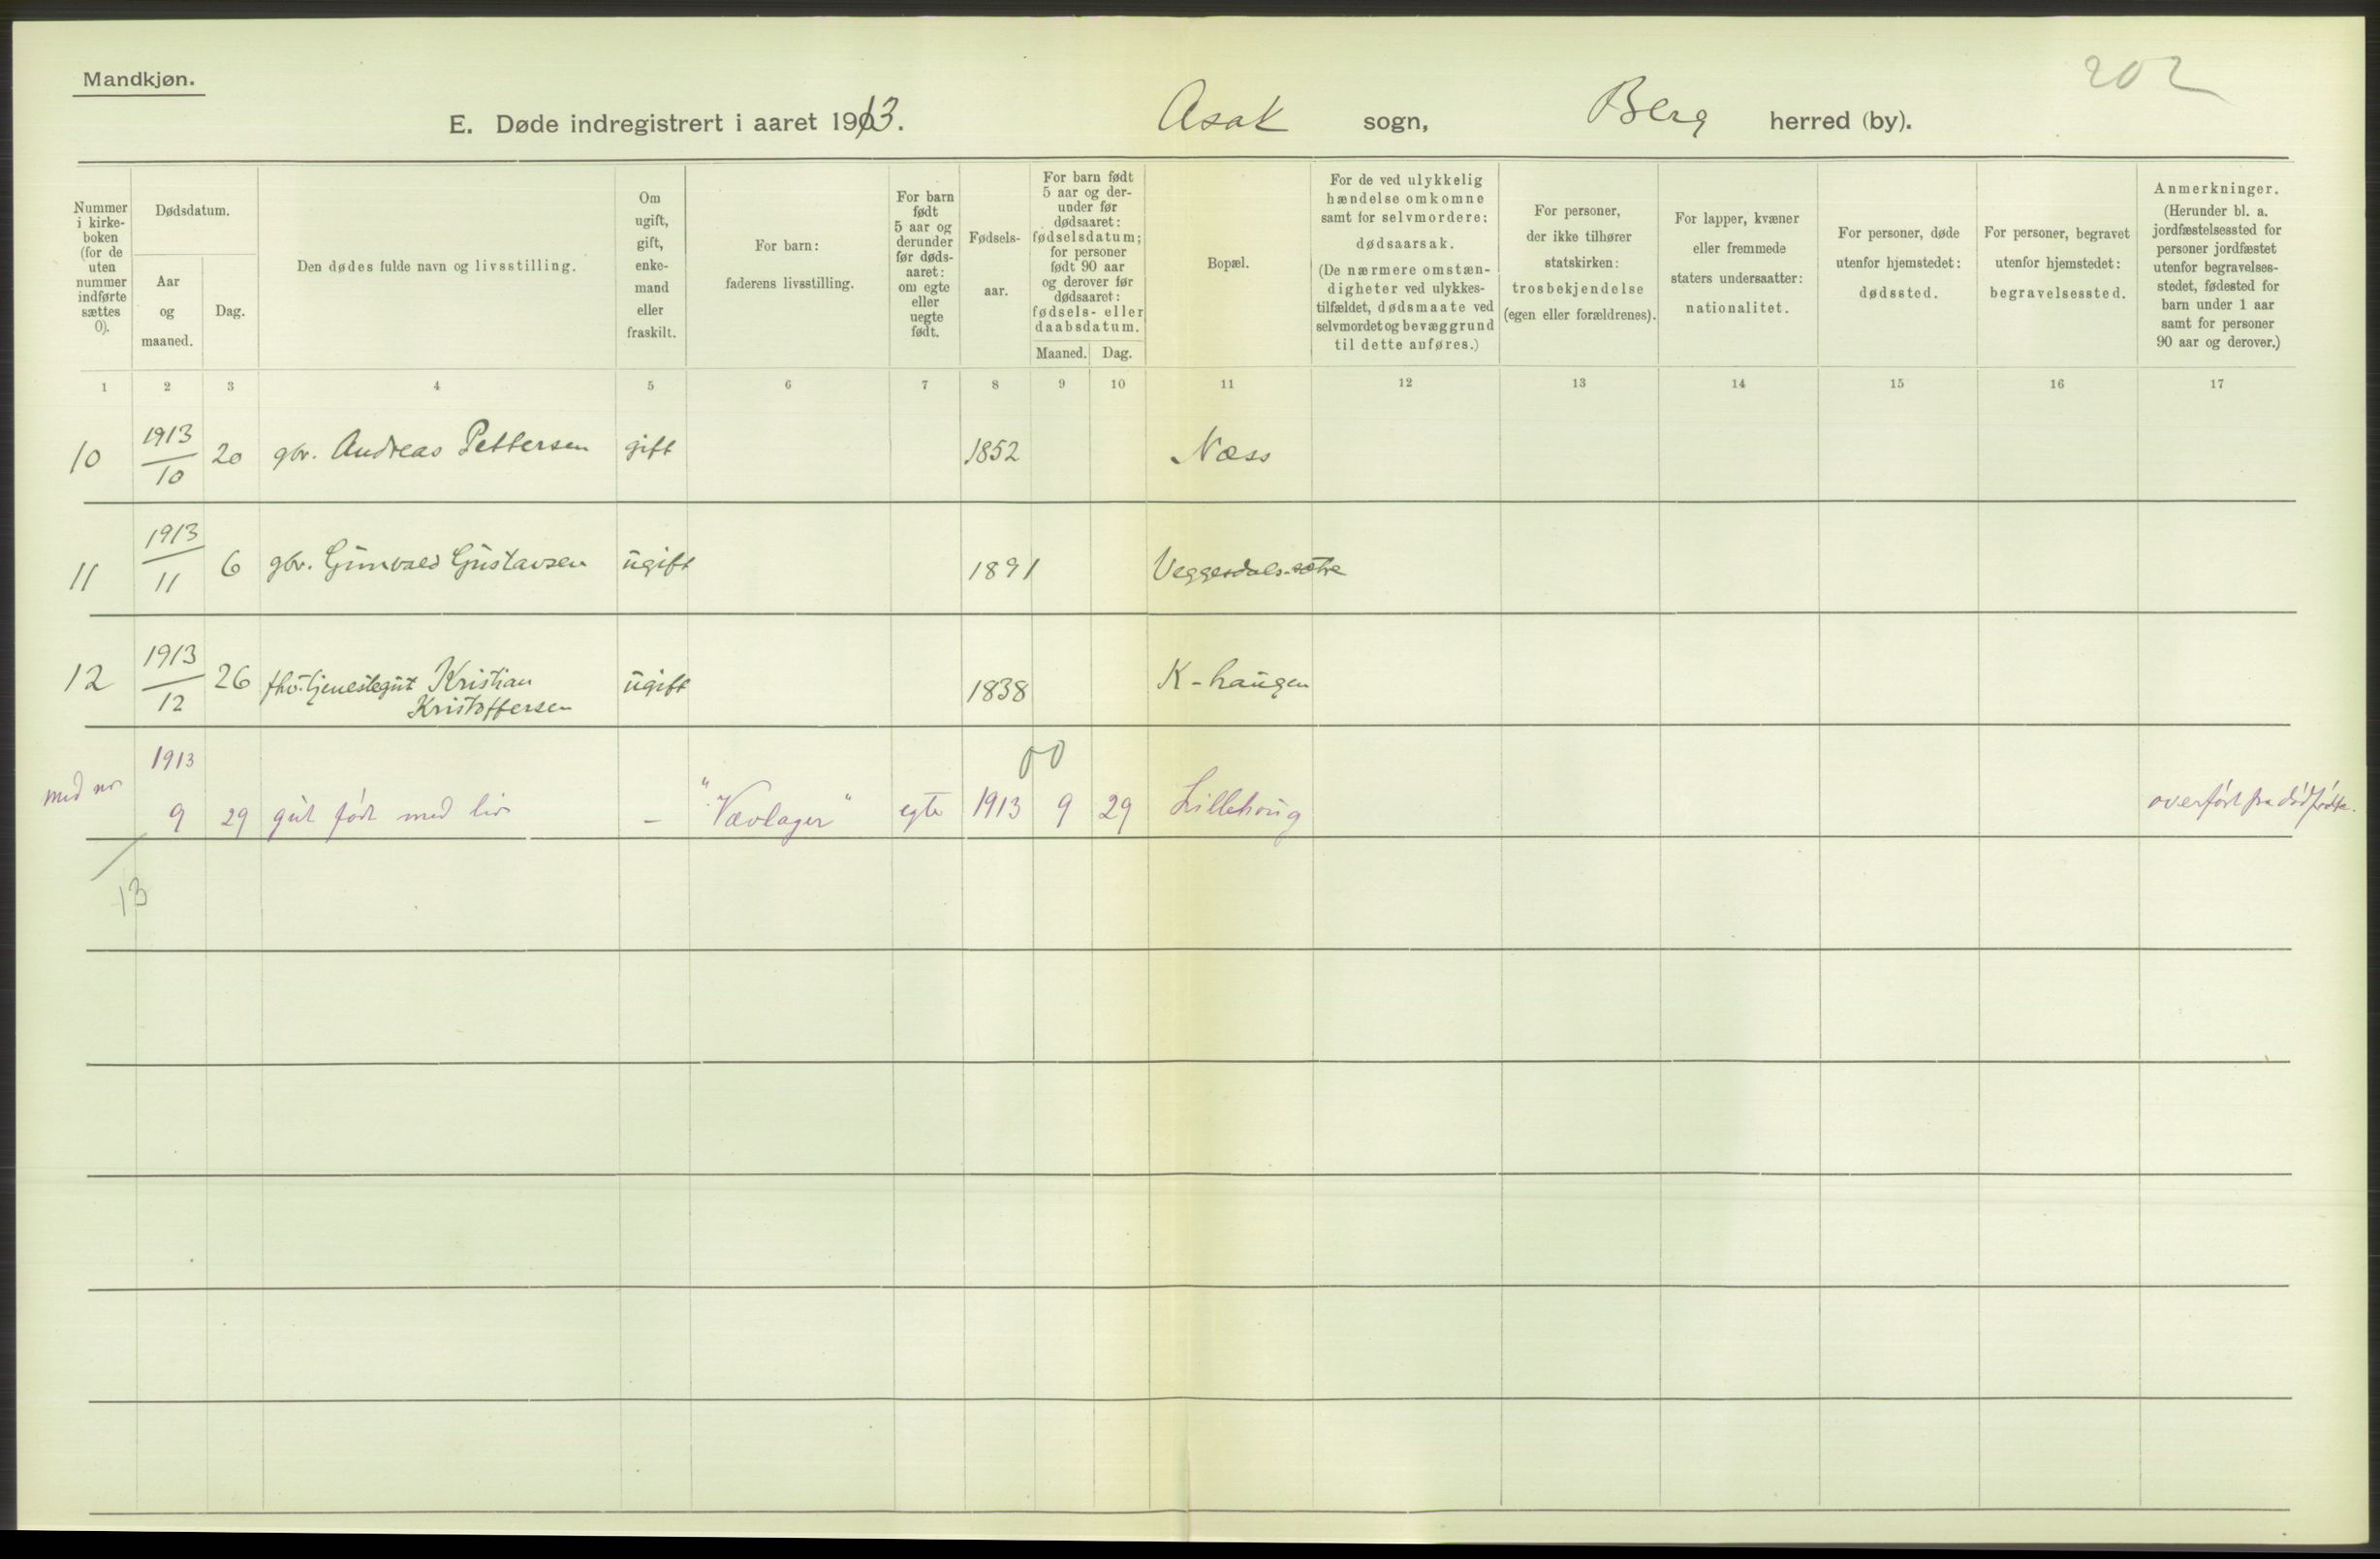 Mandkjøn.
202
E. Døde indregistrert i aaret 1913. Asak sogn, Berg herred (by).
Nummer i kirke-boken (for de uten nummer indførte sættes 0).
Dødsdatum.
Aar og maaned.
Dag.
Den dødes fulde navn og livsstilling.
Om ugift, gift, enke-mand eller fraskilt.
For barn: faderens livsstilling.
For barn født 5 aar og derunder før døds-aaret: om egte eller uegte født.
Fødsels-aar.
For barn født 5 aar og der-under før dødsaaret: fødselsdatum; for personer født 90 aar og derover før dødsaaret: fødsels- eller daabsdatum.
Maaned. Dag.
Bopæl.
For de ved ulykkelig hændelse omkomne samt for selvmordere: dødsaarsak. (De nærmere omstæn-digheter ved ulykkes-tilfældet, dødsmaate ved selvmordet og bevæggrund til dette anføres.)
For personer, der ikke tilhører statskirken: trosbekjendelse (egen eller forældrenes).
For lapper, kvæner eller fremmede staters undersaatter: nationalitet.
For personer, døde utenfor hjemstedet: dødssted.
For personer, begravet utenfor hjemstedet: begravelsessted.
Anmerkninger. (Herunder bl. a. jordfæstelsessted for personer jordfæstet utenfor begravelses-stedet, fødested for barn under 1 aar samt for personer 90 aar og derover.)
1 2 3 4 5 6 7 8 9 10 11 12 13 14 15 16 17
10 1913/10 20 gbr. Andreas Pettersen gift 1852 Næss
11 1913/11 6 gbr. Gunvald Gustavsen ugift 1891 Veggesdals-sætre
12 1913/12 26 fhv. tjenestegut Kristian ugift 1838 K-haugen
Kristoffersen
1913 00
med nr 9 29 gut født med liv - "Vævlager" egte 1913 9 29 Lillehoug overført fra dødfødte.
13